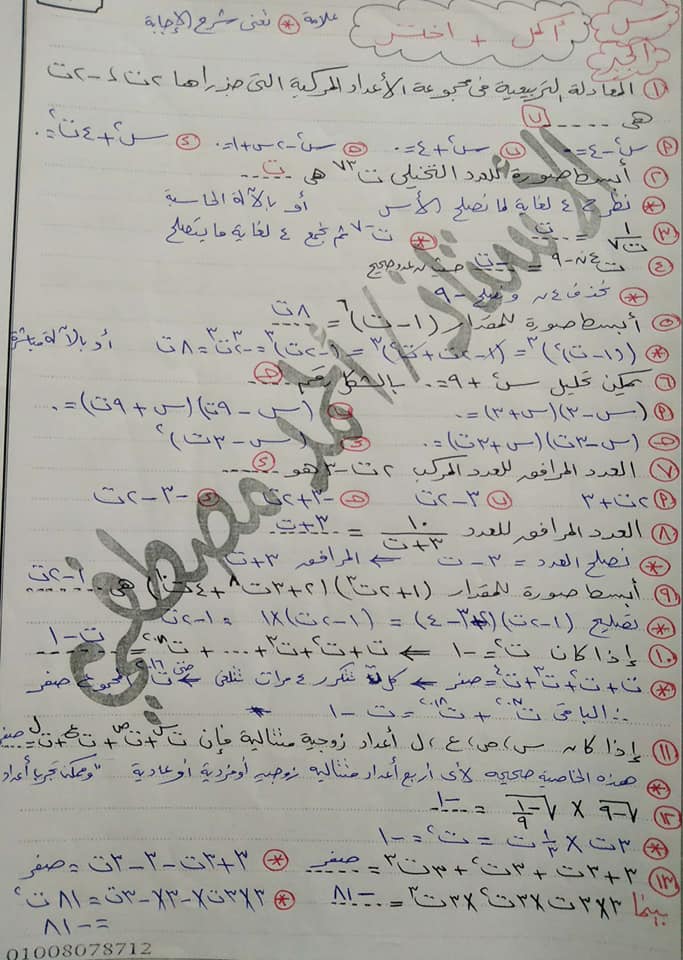 س١ أكمل + اختر
علامة * تعنى شرح الإجابة
الجبر
١ المعادلة التربيعية فى مجموعة الأعداد المركبة التى جذراها ٢ت ، -٢ت
هى ---- ب
م س٢-٤=٠ ب س٢+٤=٠ ح س٢-٢س+١=٠ ء س٢+٤ت٢=٠
٢ أبسط صورة للعدد التخيلى ت٧٣ هى ت
* نطرح ٤ لغاية ما نصلح الأس أو بالآلة الحاسبة
٣ ١/ت٧ = ت * ت-٧ ثم نجمع ٤ لغاية ما يتصلح
٤ ت٤ن-٩ = -ت حيث ن عدد صحيح
* نحذف ٤ن و نصلح -٩
٥ أبسط صورة للمقدار (١-ت)٦ = ٨ت
* ((١-ت)٢)٣ = (١-٢ت+ت٢)٣ = (-٢ت)٣ = -٢٣ت٣ = ٨ت أو بالآلة مباشرة
٦ يمكن تحليل س٢+٩=٠ بالشكل رقم ح
م (س-٣)(س+٣)=٠ ب (س-٩ت)(س+٩ت)=٠
ح (س-٣ت)(س+٣ت)=٠ ء (س-٣ت)٢
٧ العدد المرافق للعدد المركب ٢ت-٣ هو ء
م ٢ت+٣ ب ٣-٢ت ح -٣+٢ت ء -٣-٢ت
٨ العدد المرافق للعدد ١٠/٣+ت = ٣+ت
* نصلح العدد = ٣-ت ← المرافق ٣+ت
٩ أبسط صورة للمقدار (١+٢ت٣)(٢+٣ت٨+٤ت٢) هى ١-٢ت
* تصليح (١-٢ت)(٢+٣-٤) = (١-٢ت)×١ = ١-٢ت
١٠ إذا كان ت٢=-١ ← ت+ت٢+ت٣+...+ت٢٠١٨ = ت-١
* ت+ت٢+ت٣+ت٤=صفر ← كل ت تتكرر ٤ مرات تتلغى ← حتى ت٢٠١٦ المجموع صفر
∴ الباقى ت٢٠١٧+ت٢٠١٨ = ت-١
١١ إذا كان س، ص، ع، ل أعداد زوجية متتالية فإن تس+تص+تع+تل=صفر
* هذه الخاصية صحيحه لأى أربع أعداد متتاليه زوجيه أو فردية أو عادية "وممكن تجربها أعداد
١٢ √-٩ × √-١/٩ = -١
* ٣ت × ١/٣ت = ت٢ = -١
١٣ ٣+٣ت+٣ت٢+٣ت٣ = صفر * ٣+٣ت-٣-٣ت=صفر
بينما ٣×٣ت×٣ت٢×٣ت٣ = -٨١ * ٣×٣ت×-٣×-٣ت = ٨١ت٢
= -٨١
الأستاذ/ أحمد مصطفى
01008078712